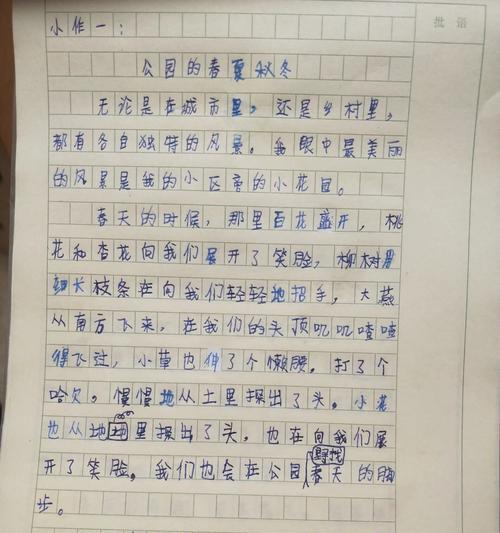 批语
小作一：
公园的春夏秋冬
无论是在城市里，还是乡村里，
都有各自独特的风景。我眼中最美丽
的风景是我的小区旁的小花园。
春天的时候，那里百花盛开，桃
花和杏花向我们展开了笑脸，柳树用
细长枝条在向我们轻轻地招手，大燕
从南方飞来，在我们的头顶叽叽喳喳
得飞过，小草也伸了个懒腰，打了个
哈欠。慢慢地从土里探出了头。小花
也从地里探出了头，也在向我们展
开了笑脸。我们也会在公园寻找春天的脚
步。